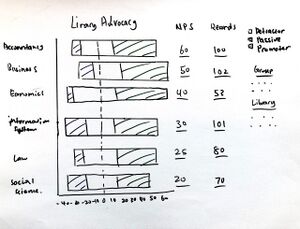 Lirary Advocacy
NPS Records
Detractor
Passive
Promoter
Accountancy 60 100
Business 50 102
Economics 40 52
information System 30 101
Law 25 80
Social Science 20 70
Group
Library
-40 -30 -20 -10 0 10 20 30 40 50 60